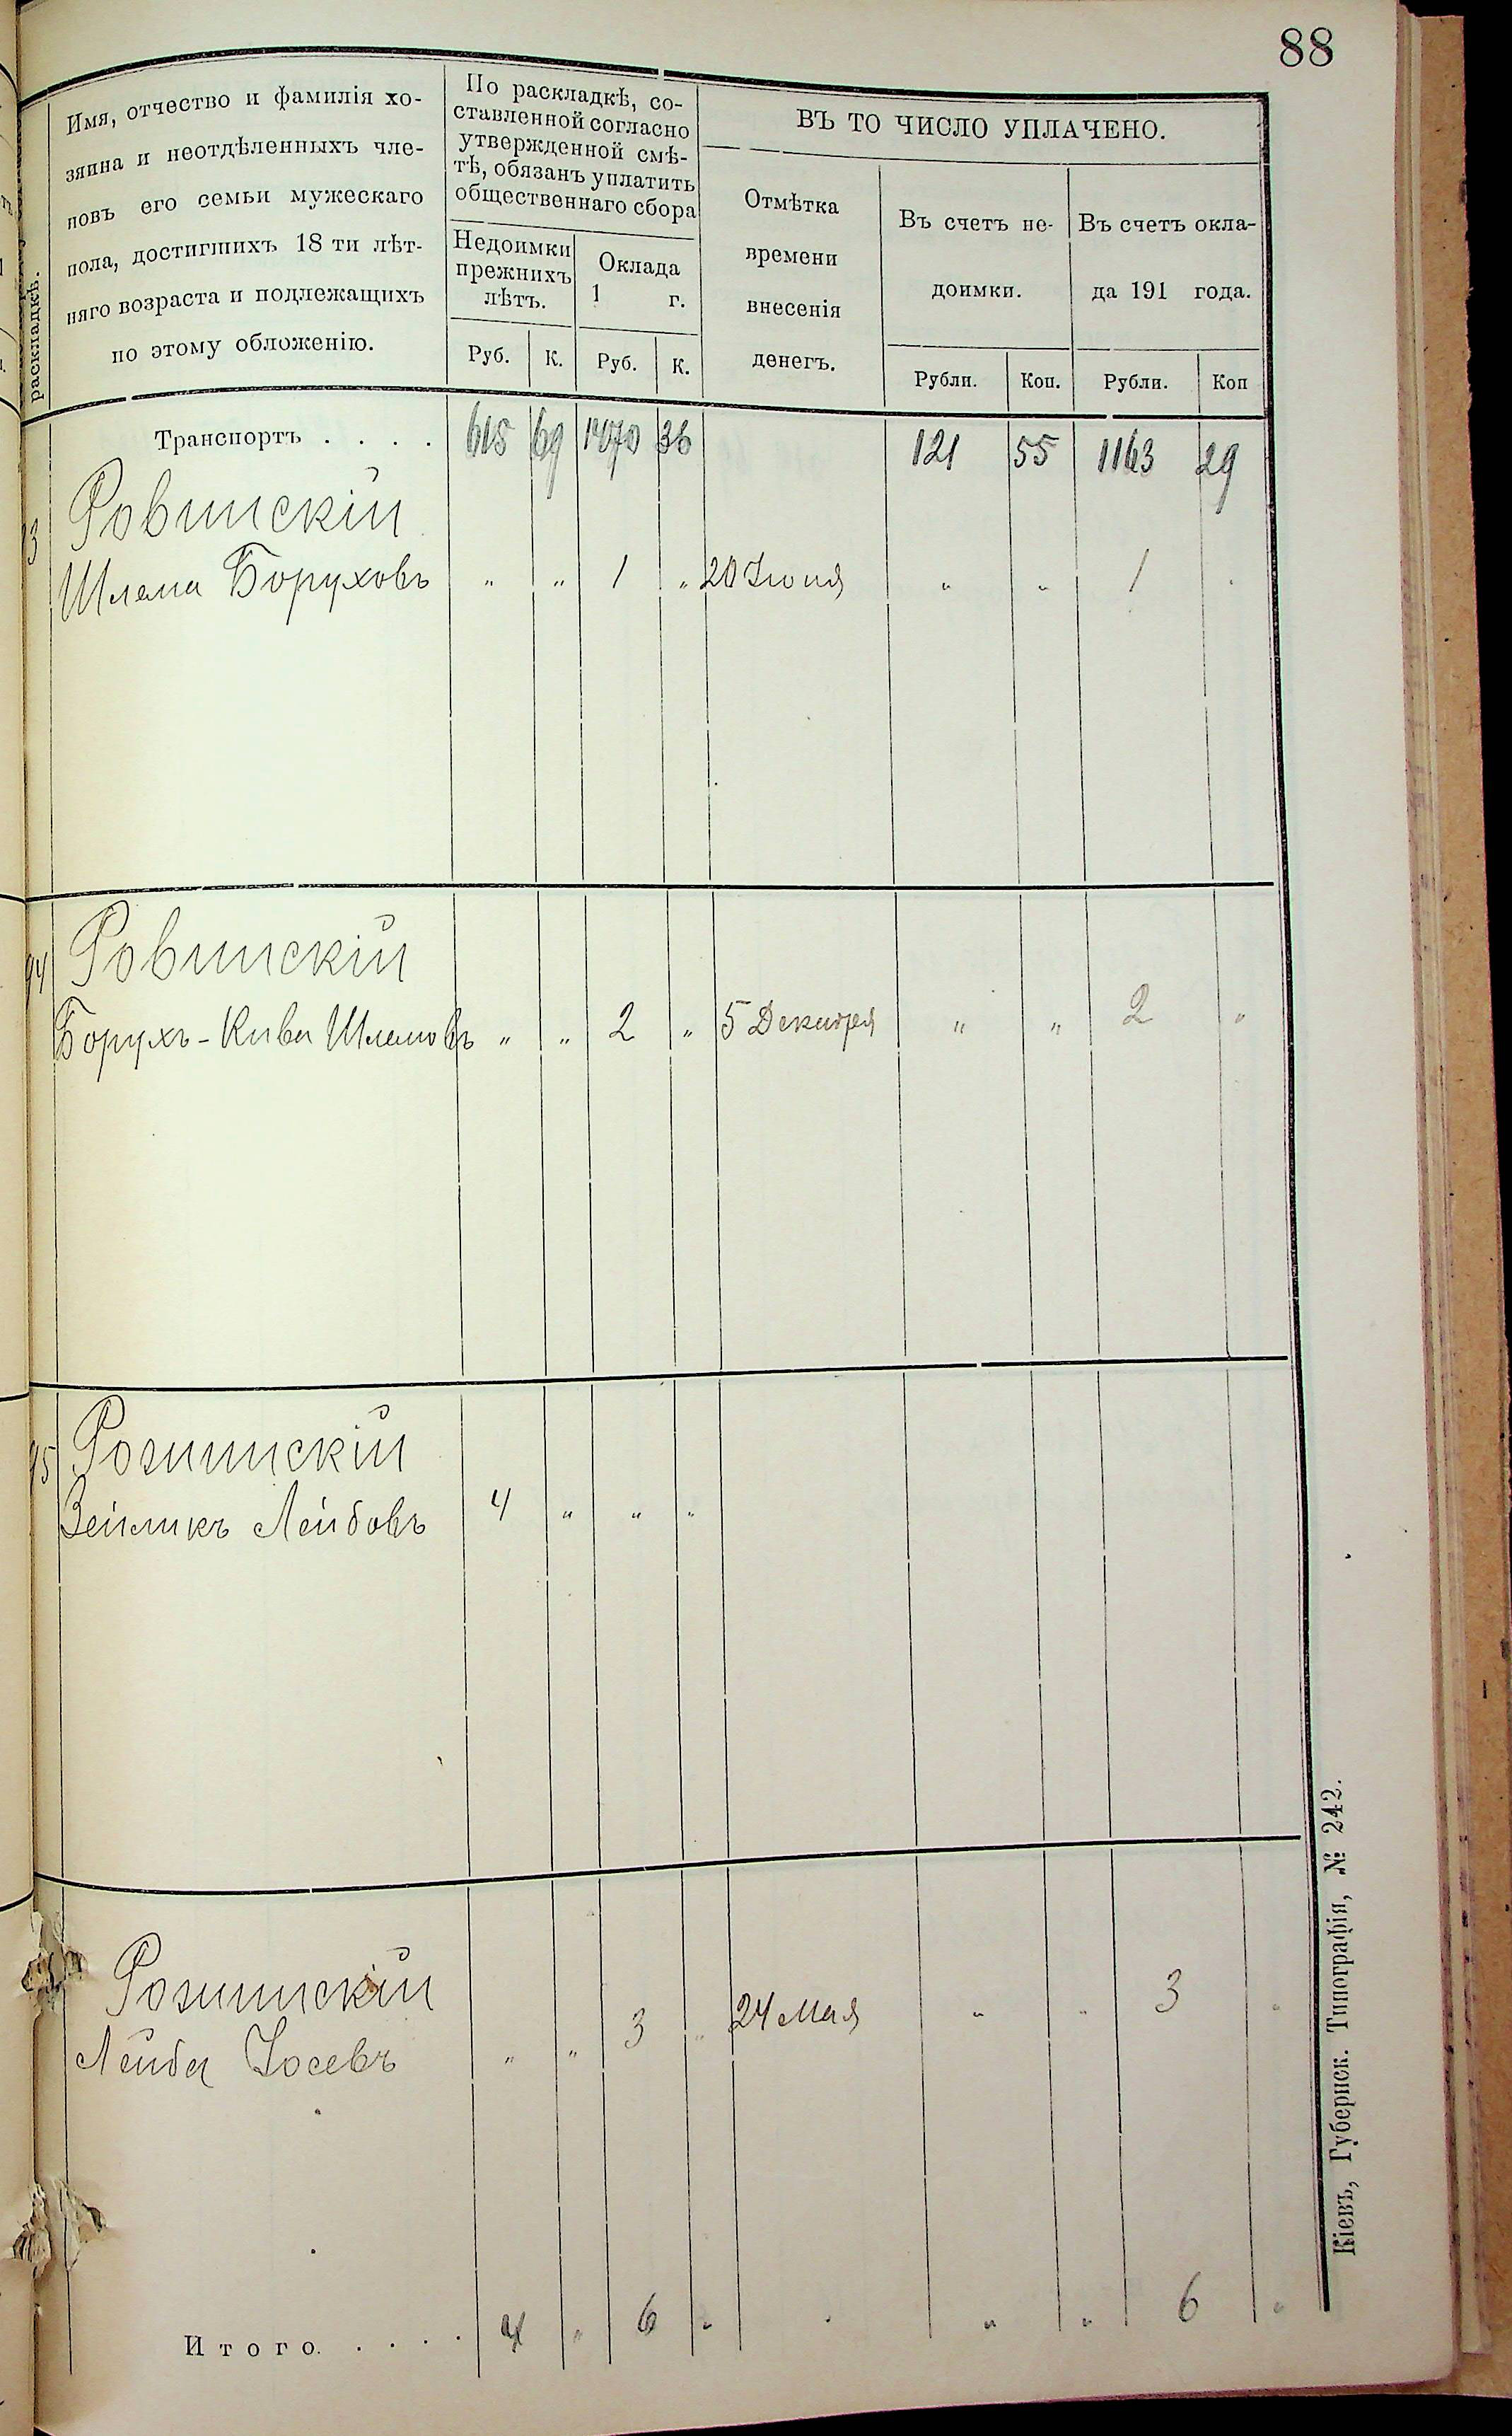 88
раскладкѣ.
Имя, отчество и фамилія хо-
зяина и неотдѣленныхъ чле-
новъ его семьи мужескаго
пола, достигшихъ 18 ти лѣт-
няго возраста и подлежащихъ
по этому обложенію.
По раскладкѣ, со-
ставленной согласно
утвержденной смѣ-
тѣ, обязанъ уплатить
общественнаго сбора
Недоимки
прежнихъ
лѣтъ.
Оклада
1 г.
Руб. К. Руб. К.
ВЪ ТО ЧИСЛО УПЛАЧЕНО.
Отмѣтка
времени
внесенія
денегъ.
Въ счетъ не-
доимки.
Въ счетъ окла-
да 191 года.
Рубли. Коп. Рубли. Коп
Транспортъ . . . . 615 69 36 121 55 1163 29
Ровинскій
3 Шлема Боруховъ " " 1 " 20 Іюня " " 1 "
94 Ровинскій
Борухъ-Кива Шлемовъ " " 2 " 5 Декабря " " 2 "
95 Розинскій
Зейликъ Лейбовъ 4 " " "
Розинскій
Лейба Іосевъ " " 3 " 24 Мая " " 3 "
Итого. . . . . 4 " 6 " " " 6 "
Кіевъ, Губернск. Типографія, № 242.